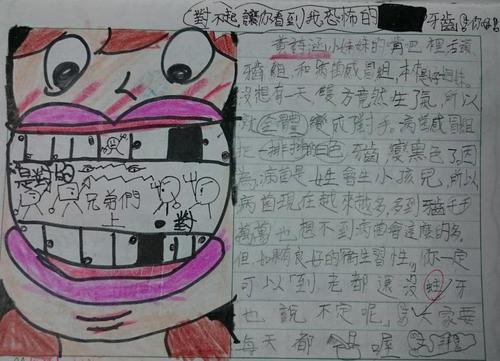 對不起讓你看到我恐怖的牙齒
黃詩涵小妹妹的嘴巴裡住
牙齒組和病菌威冒組,本
沒想有一天,雙方竟然生了氣,所以
全體變成對手。病菌威冒組
把一排排的白色牙齒,變黑色了。因
為,病菌是女生會生小孩兒,所以,
病菌現在越來越多,多到牙齒千千
萬萬也想不到病菌會這麼的多。
但,如果有良好的衛生習性,你一定
可以到老都還沒蛀牙
也說不定呢,大家要
每天都喔
是對的
兄弟們
上
對